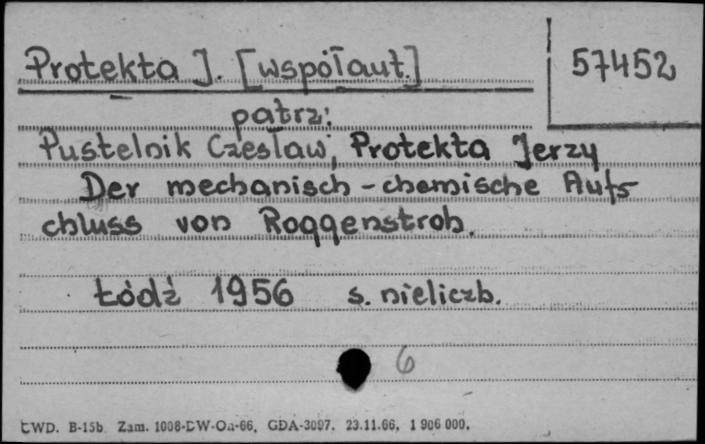 Protekta J. [współaut.]
57452
patrz:
Pustelnik Czesław, Protekta Jerzy
Der mechanisch-chemische Aufs
chluss von Roggenstroh.
Łódź 1956 s. nieliczb.
6
CWD. B-15b Zam. 1008-DW-Oa-66, GDA-3097. 23.11.66, 1 906 000.